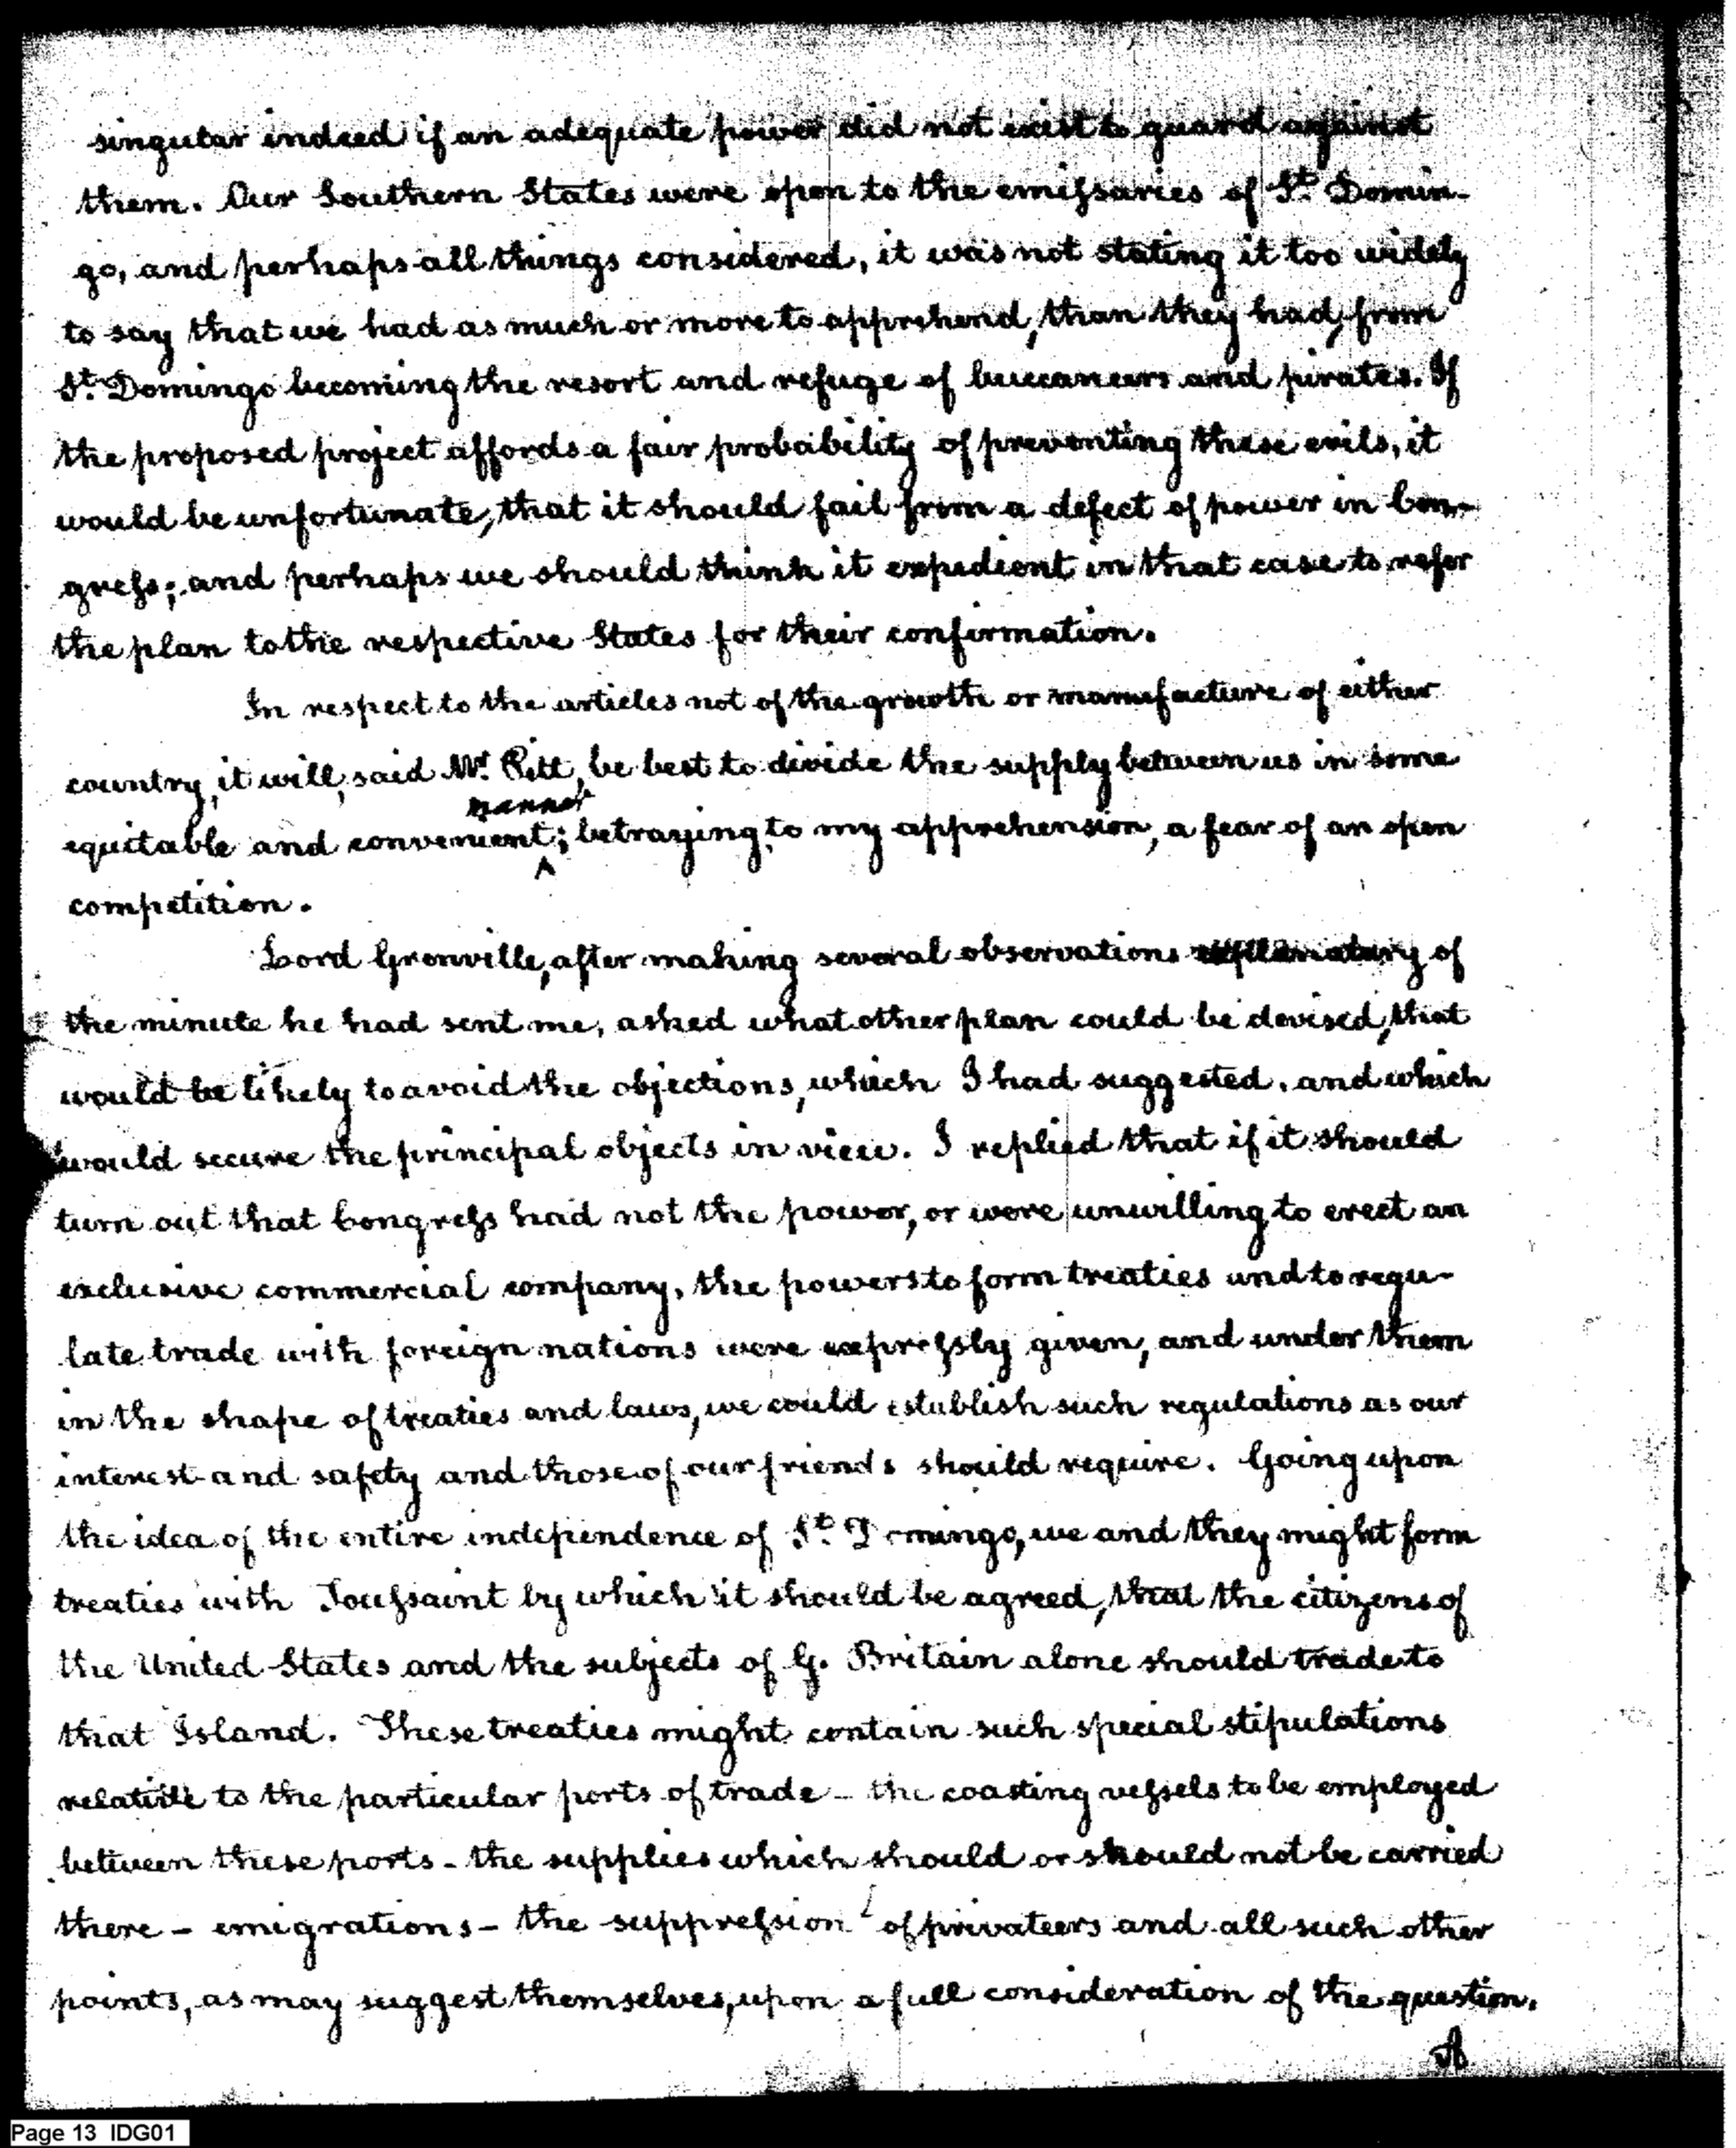 singular indeed if an adequate power did not exist to guard against
them. Our Southern States were open to the emissaries of St. Domin-
go, and perhaps all things considered, it was not stating it too widely
to say that we had as much or more to apprehend, than they had, from
St. Domingo becoming the resort and refuge of buccaneers and pirates. If
the proposed project affords a fair probability of preventing these evils, it
would be unfortunate, that it should fail from a defect of power in Con-
gress; and perhaps we should think it expedient in that case to refer
the plan to the respective States for their confirmation.
In respect to the articles not of the growth or manufacture of either
country, it will, said Mr. Pitt, be best to divide the supply between us in some
manner
equitable and convenient; betraying, to my apprehension, a fear of an open
competition.
Lord Grenville, after making several observations explanatory of
the minute he had sent me, asked what other plan could be devised, that
would be likely to avoid the objections, which I had suggested, and which
would secure the principal objects in view. I replied that if it should
turn out that Congress had not the power, or were unwilling to erect an
exclusive commercial company, the powers to form treaties and to regu-
late trade with foreign nations were expressly given, and under them
in the shape of treaties and laws, we could establish such regulations as our
interest and safety and those of our friends should require. Going upon
the idea of the entire independence of St. Domingo, we and they might form
treaties with Toussaint by which it should be agreed, that the citizens of
the United States and the subjects of G. Britain alone should trade to
that Island. These treaties might contain such special stipulations
relative to the particular ports of trade - the coasting vessels to be employed
between these ports - the supplies which should or should not be carried
there - emigrations - the suppression of privateers and all such other
points, as may suggest themselves, upon a full consideration of the question.
A
Page 13 IDG01